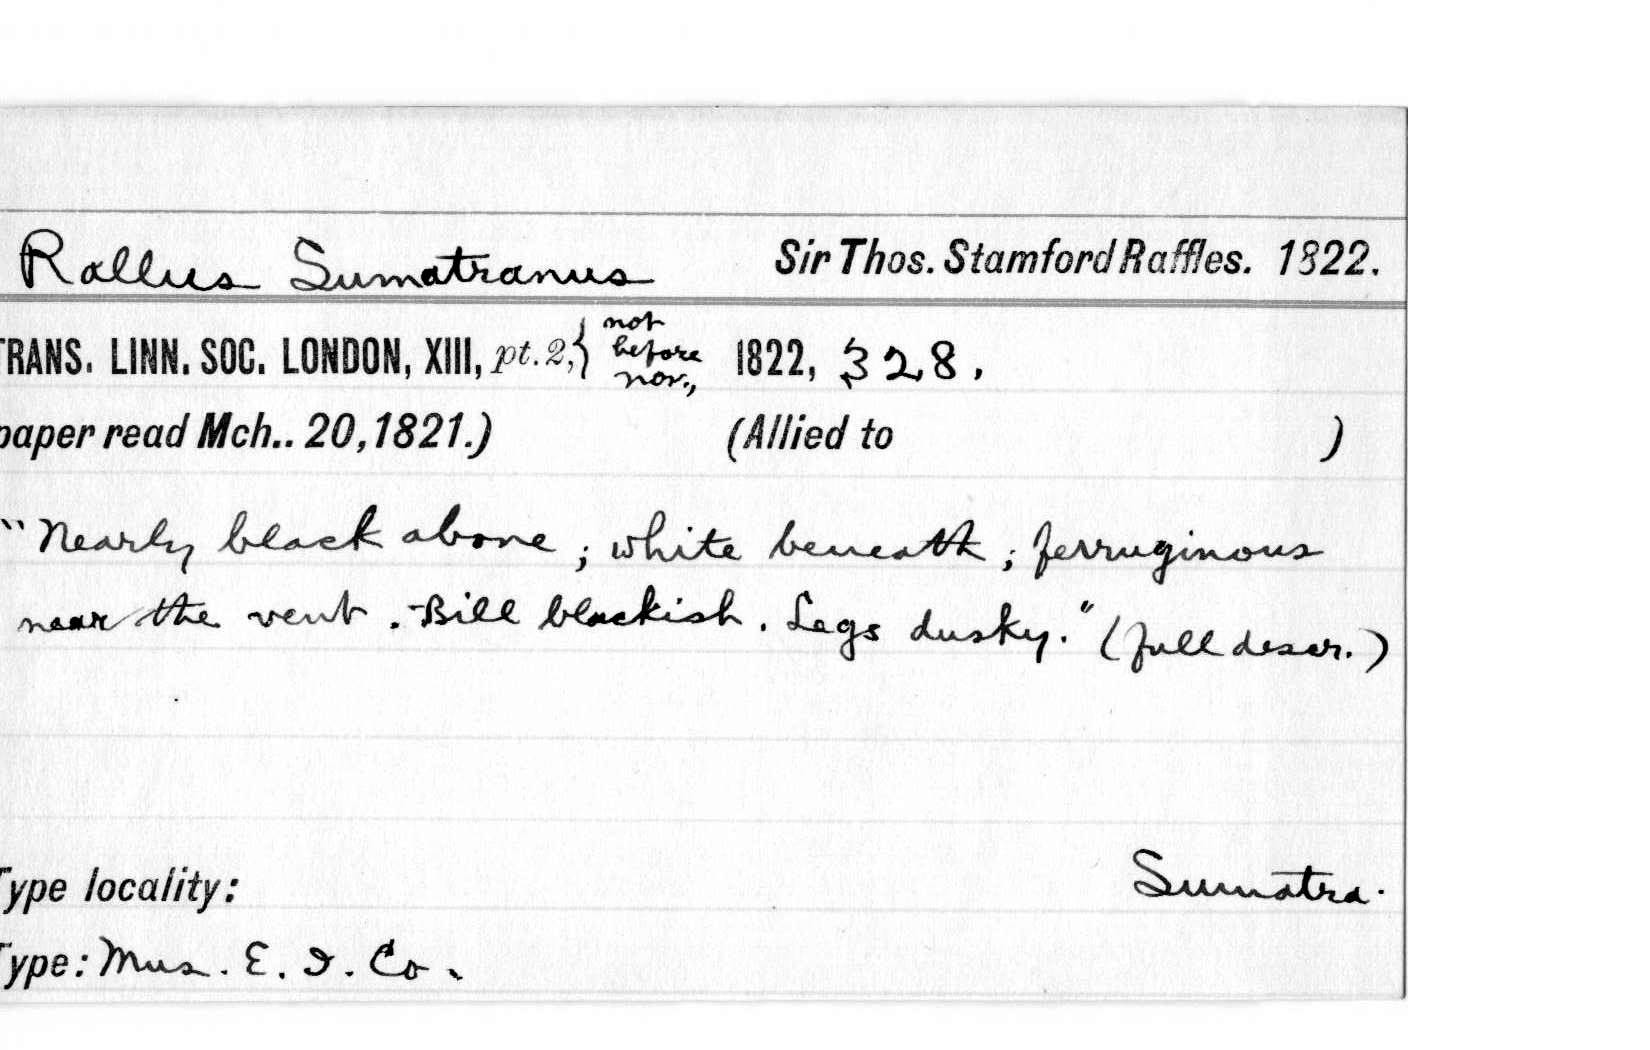 Rallus Sumatranus Sir Thos. Stamford Raffles. 1822.
TRANS. LINN. SOC. LONDON, XIII, pt. 2, { not before nov., 1822, 328.
paper read Mch.. 20, 1821.) (Allied to )
"Nearly black above; white beneath; ferruginous
near the vent. Bill blackish. Legs dusky." (full descr.)
Type locality: Sumatra.
Type: Mus. E. I. Co.